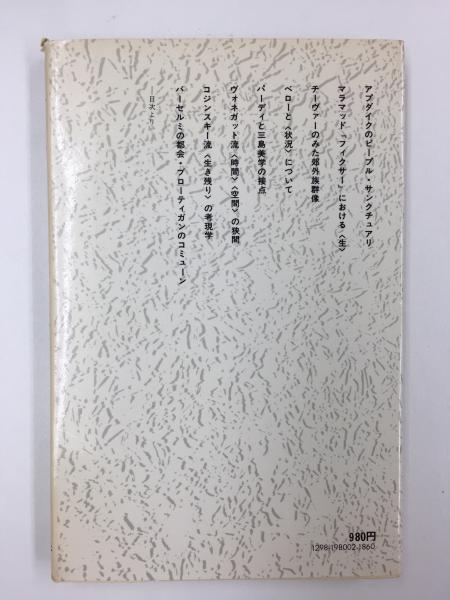 アプダイクのピープル・サンクチュアリ
マラマッド「フイクサー」における〈生〉
チーヴァーのみた郊外族群像
ベローと〈状況〉について
パーディと三島美学の接点
ヴォネガット流〈時間〉〈空間〉の狭間
コジンスキー流〈生き残り〉の考現学
バーセルミの都会・ブローティガンのコミューン
—目次より—
980円
1298-198002-1860